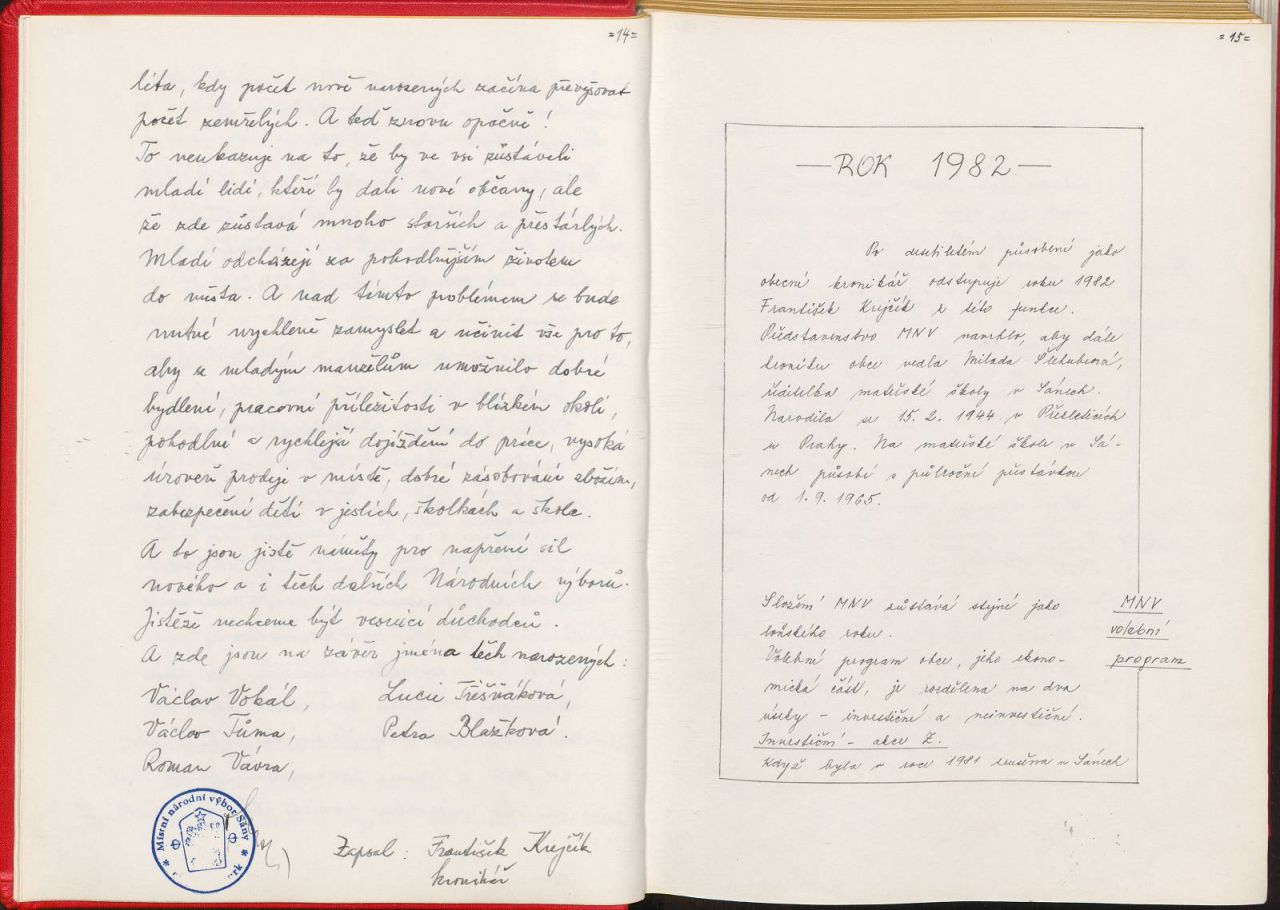 =14=
léta, kdy počet nově narozených začíná převyšovat
počet zemřelých. A teď znovu opačně!
To neukazuje na to, že by ve vsi zůstávali
mladí lidi, kteří by dali nové občany, ale
že zde zůstává mnoho starších a přestárlých.
Mladí odcházejí za pohodlnějším životem
do města. A nad tímto problémem se bude
nutné urychleně zamyslet a učinit vše pro to,
aby se mladým manželům umožnilo dobré
bydlení, pracovní příležitosti v blízkém okolí,
pohodlné a rychlejší dojíždění do práce, vysoká
úroveň prodeje v místě, dobré zásobování zbožím,
zabezpečení dětí v jeslích, školkách a škole.
A to jsou jistě náměty pro napření sil
nového a i těch dalších Národních výborů.
Jistěže nechceme být vesnicí důchodců.
A zde jsou na závěr jména těch narozených:
Václav Vokál, Lucie Třešňáková,
Václav Tůma, Petra Blažková.
Roman Vávra,
Místní národní výbor Sány
Zapsal: František Krejčík
kronikář
=15=
— ROK 1982 —
Po desítiletém působení jako
obecní kronikář odstupuje roku 1982
František Krejčík z této funkce.
Představenstvo MNV navrhlo, aby dále
kroniku obce vedla Milada
ředitelka mateřské školy v Sánech.
Narodila se 15. 2. 1944 v Přezleticích
u Prahy. Na mateřské škole v Sá-
nech působí s půlroční přestávkou
od 1. 9. 1965.
Složení MNV zůstává stejné jako
loňského roku.
Volební program obce, jeho ekono-
mická část, je rozdělena na dva
úseky - investiční a neinvestiční.
Investiční - akce Z.
Když byla v roce 1981 zrušena v Sánech
MNV
volební
program